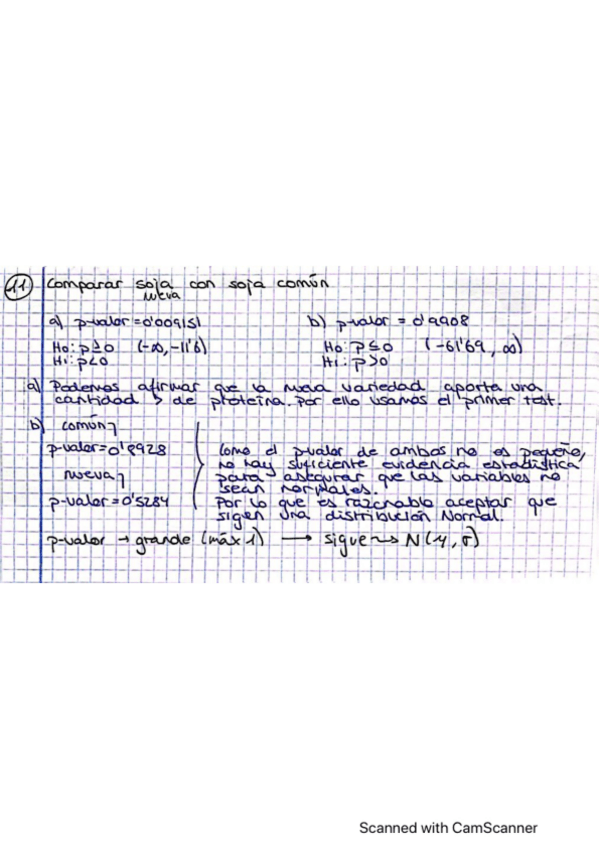 11 Comparar soja con soja común
nueva
a) p-valor = 0'009151
H0: p ≥ 0 (-∞, -11'6)
H1: p < 0
b) p-valor = 0'9908
H0: p ≤ 0 (-61'69, ∞)
H1: p > 0
a) Podemos afirmar que la nueva variedad aporta una
cantidad > de proteína. Por ello usamos el primer test.
b) común
p-valor = 0'8928
nueva
p-valor = 0'5284
Como el p-valor de ambos no es pequeño,
no hay suficiente evidencia estadística
para asegurar que las variables no
sean normales.
Por lo que es razonable aceptar que
sigen una distribución Normal.
p-valor → grande (máx 1) → sigue → N(μ, σ)
Scanned with CamScanner